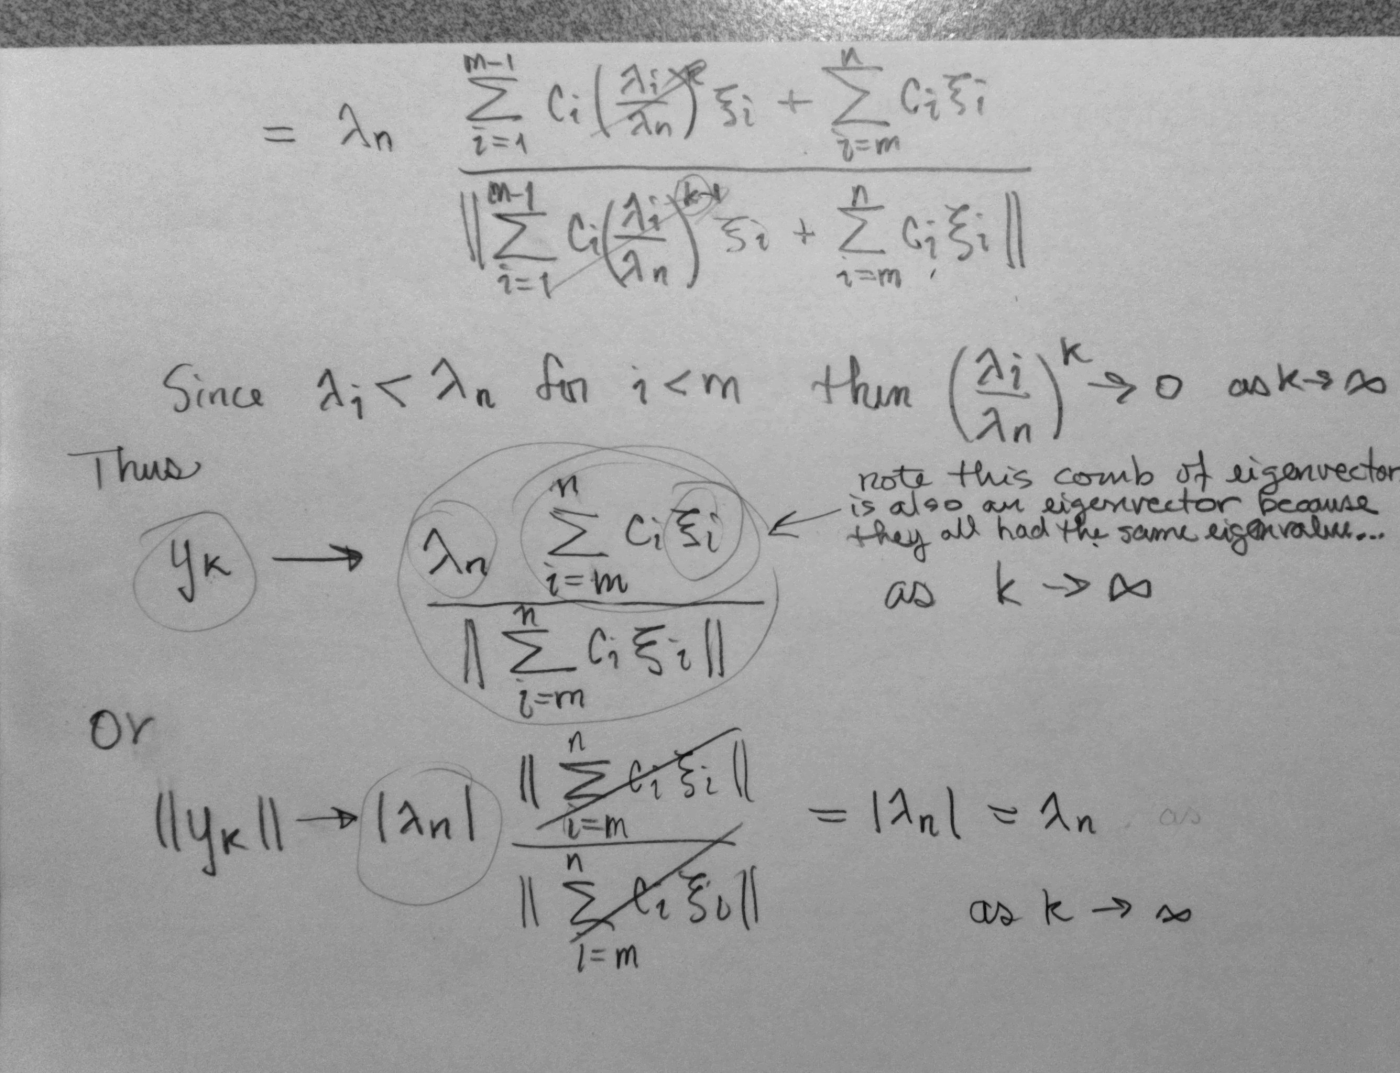 = λn (∑_{i=1}^{m-1} Ci (λi/λn)^k ξi + ∑_{i=m}^{n} Ci ξi) / (‖∑_{i=1}^{m-1} Ci (λi/λn)^{k-1} ξi + ∑_{i=m}^{n} Ci ξi‖)
Since λi < λn for i < m then (λi/λn)^k → 0 as k → ∞
Thus
note this comb of eigenvector
is also an eigenvector because
they all had the same eigenvalue...
yk → (λn ∑_{i=m}^{n} Ci ξi) / (‖∑_{i=m}^{n} Ci ξi‖) as k → ∞
Or
‖yk‖ → |λn| (‖∑_{i=m}^{n} Ci ξi‖) / (‖∑_{i=m}^{n} Ci ξi‖) = |λn| = λn as
as k → ∞